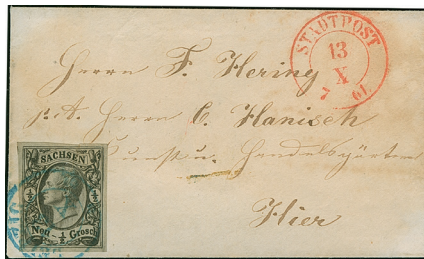 STADTPOST
13
X
61.
Herrn F. Hering
p. A. Herrn C. Hanisch
Kunst u. Handelsgärtner
Hier
SACHSEN
½ ½
Neu ½ Grosch